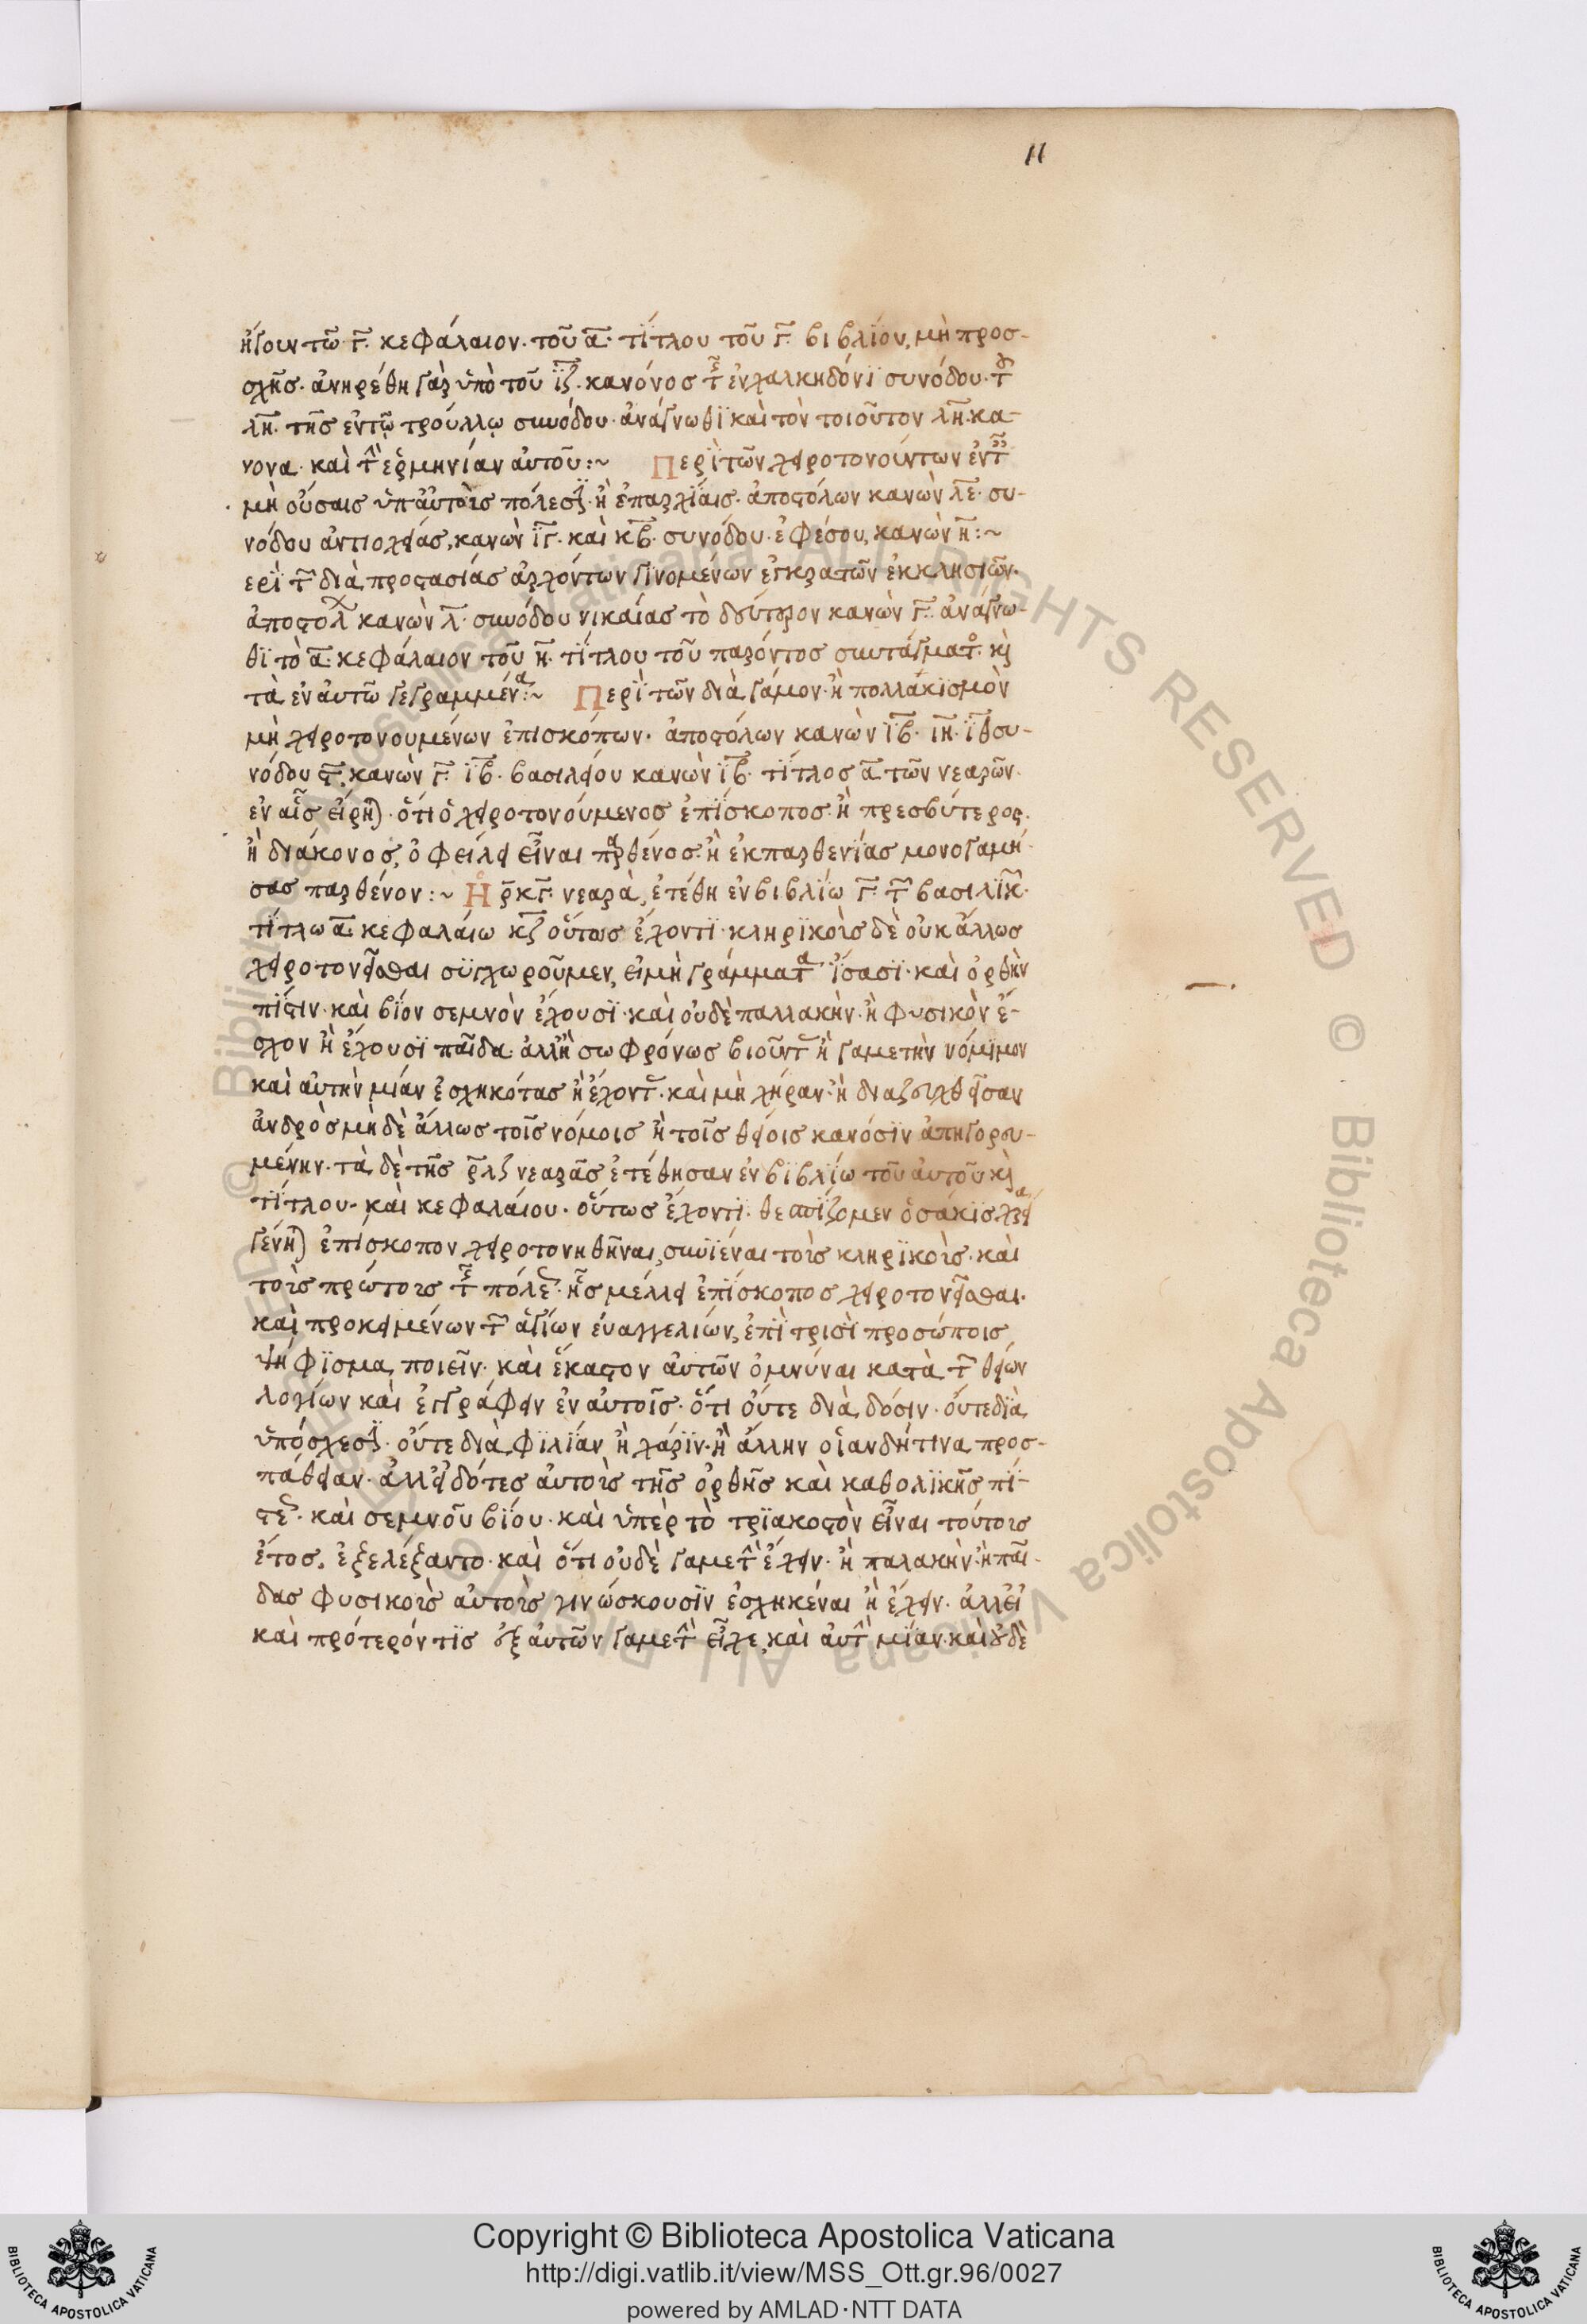 11
ἤγουν τῶ γ̅. κεφάλαιον· τοῦ α̅· τίτλου τοῦ γ̅. βιβλίου, μὴ προσ-
σχῆς· ἀνηρέθη γὰρ ὑπὸ τοῦ ιζ̅. κανόνος τ ἐν χαλκηδόνϊ συνόδου· τ
λη̅. τῆς ἐν τῷ τρούλλῳ συνόδου· ἀνάγνωθϊ καὶ τὸν τοιοῦτον λη̅. κα-
νονα· καὶ τ ἑρμηνίαν αὐτοῦ:~ Περὶ τῶν χειροτονούντων ἐν τ
μὴ οὔσαις ὑπ αὐτοῖς πόλεσϊ· ἢ ἐπαρχίαις· ἀποστόλων κανὼν λε̅· συ-
νόδου ἀντιοχείας, κανὼν ιγ̅. καὶ κβ̅. συνόδου· ἐφέσου, κανὼν η̅:~
ερὶ τ διὰ προστασίας ἀρχόντων γινομένων ἐγκρατῶν ἐκκλησιῶν·
ἀποστολ κανὼν λ̅· συνόδου νικαίας τὸ δεύτερον κανὼν γ̅: ἀνάγνω-
θϊ τὸ α̅: κεφάλαιον τοῦ η̅. τίτλου τοῦ παρόντος συντάγματ. κὶ
τὰ ἐν αὐτῶ γεγραμμένα:~ Περὶ τῶν διὰ γάμον· ἢ πολλάκϊσμὸν
μὴ χειροτονουμένων ἐπισκόπων· ἀποστόλων κανὼν ιβ̅· ιη̅. ιθ̅ συ-
νόδου ϛ̅. κανὼν γ̅: ιβ̅· βασιλείου κανὼν ιβ̅· τίτλος α̅ τῶν νεαρῶν·
ἐν αἷς εἴρη)· ὅτι ὁ χειροτονούμενος ἐπίσκοπος· ἢ πρεσβύτερος·
ἢ διάκονος, ὀφείλει εἶναι παρθένος· ἢ ἐκ παρθενίας μονογαμή-
σας παρθένον:~ Ἡ ρ̅κγ̅ νεαρὰ, ἐτέθη ἐν βιβλίω γ̅· τ βασιλϊκ·
τίτλω α̅· κεφαλαίω κζ̅ οὕτως ἔχοντϊ· κληρϊκοῖς δὲ οὐκ ἄλλως
χειροτονεῖσθαι συγχωροῦμεν, εἰμὴ γράμματα ἴσασϊ· καὶ ὀρθὴν
πίστιν· καὶ βίον σεμνὸν ἔχουσϊ· καὶ οὐδὲ παλλακὴν· ἢ φυσικὸν ἔ-
σχον ἢ ἔχουσϊ παῖδα· ἀλλ ἢ σωφρόνως βιοῦντ ἢ γαμετὴν νόμϊμον
καὶ αὐτὴν μίαν ἐσχηκότας ἢ ἔχοντ· καὶ μὴ χήραν· ἢ διαζευχθεῖσαν
ἀνδρὸς μὴδὲ ἄλλως τοῖς νόμοις ἢ τοῖς θείοις κανόσϊν ἀπηγορευ-
μένην· τὰ δὲ τῆς ρ̅λζ νεαρᾶς ἐτέθησαν ἐν βϊβλίω τοῦ αὐτοῦ κὶ
τίτλου· καὶ κεφαλαίου· οὕτως ἔχοντϊ· θεσπίζομεν ὁσάκϊς χρεία
γένη) ἐπίσκοπον χειροτονηθῆναι, συνϊέναι τοῖς κληρϊκοῖς· καὶ
τοῖς πρώτοις τ πόλε· ἧς μέλλει ἐπίσκοπος χειροτονεῖσθαι·
καὶ προκειμένων τ ἁγίων εὐαγγελιών, ἐπὶ τρισὶ προσώποις
ψήφϊσμα ποιεῖν· καὶ ἕκαστον αὐτῶν ὀμνύναι κατὰ τ θείων
λογίων καὶ ἐγγράφειν ἐν αὐτοῖς· ὅτι οὔτε διὰ δόσιν· οὔτε δϊὰ
ὑπόσχεσϊ· οὔτε διὰ φϊλίαν ἢ χάρϊν· ἢ ἄλλην οἱανδήτινα προσ-
πάθειαν· ἀλλ εἰδότες αὐτοῖς τῆς ὀρθῆς καὶ καθολϊκῆς πί-
στε· καὶ σεμνοῦ βίου· καὶ ὑπὲρ τὸ τρϊακοστὸν εἶναι τούτοις
ἔτος, ἐξελέξαντο· καὶ ὅτι οὐδὲ γαμετ ἔχειν· ἢ παλακὴν· ἢ παῖ-
δας φυσικοῖς αὐτοῖς γινώσκουσϊν ἐσχηκέναι ἢ ἔχειν· ἀλλ εἰ
καὶ πρότερόν τϊς ἐξ αὐτῶν γαμετ εἶχε, καὶ αὐτ μίαν· καὶ οὐδὲ
Copyright © Biblioteca Apostolica Vaticana
http://digi.vatlib.it/view/MSS_Ott.gr.96/0027
powered by AMLAD·NTT DATA